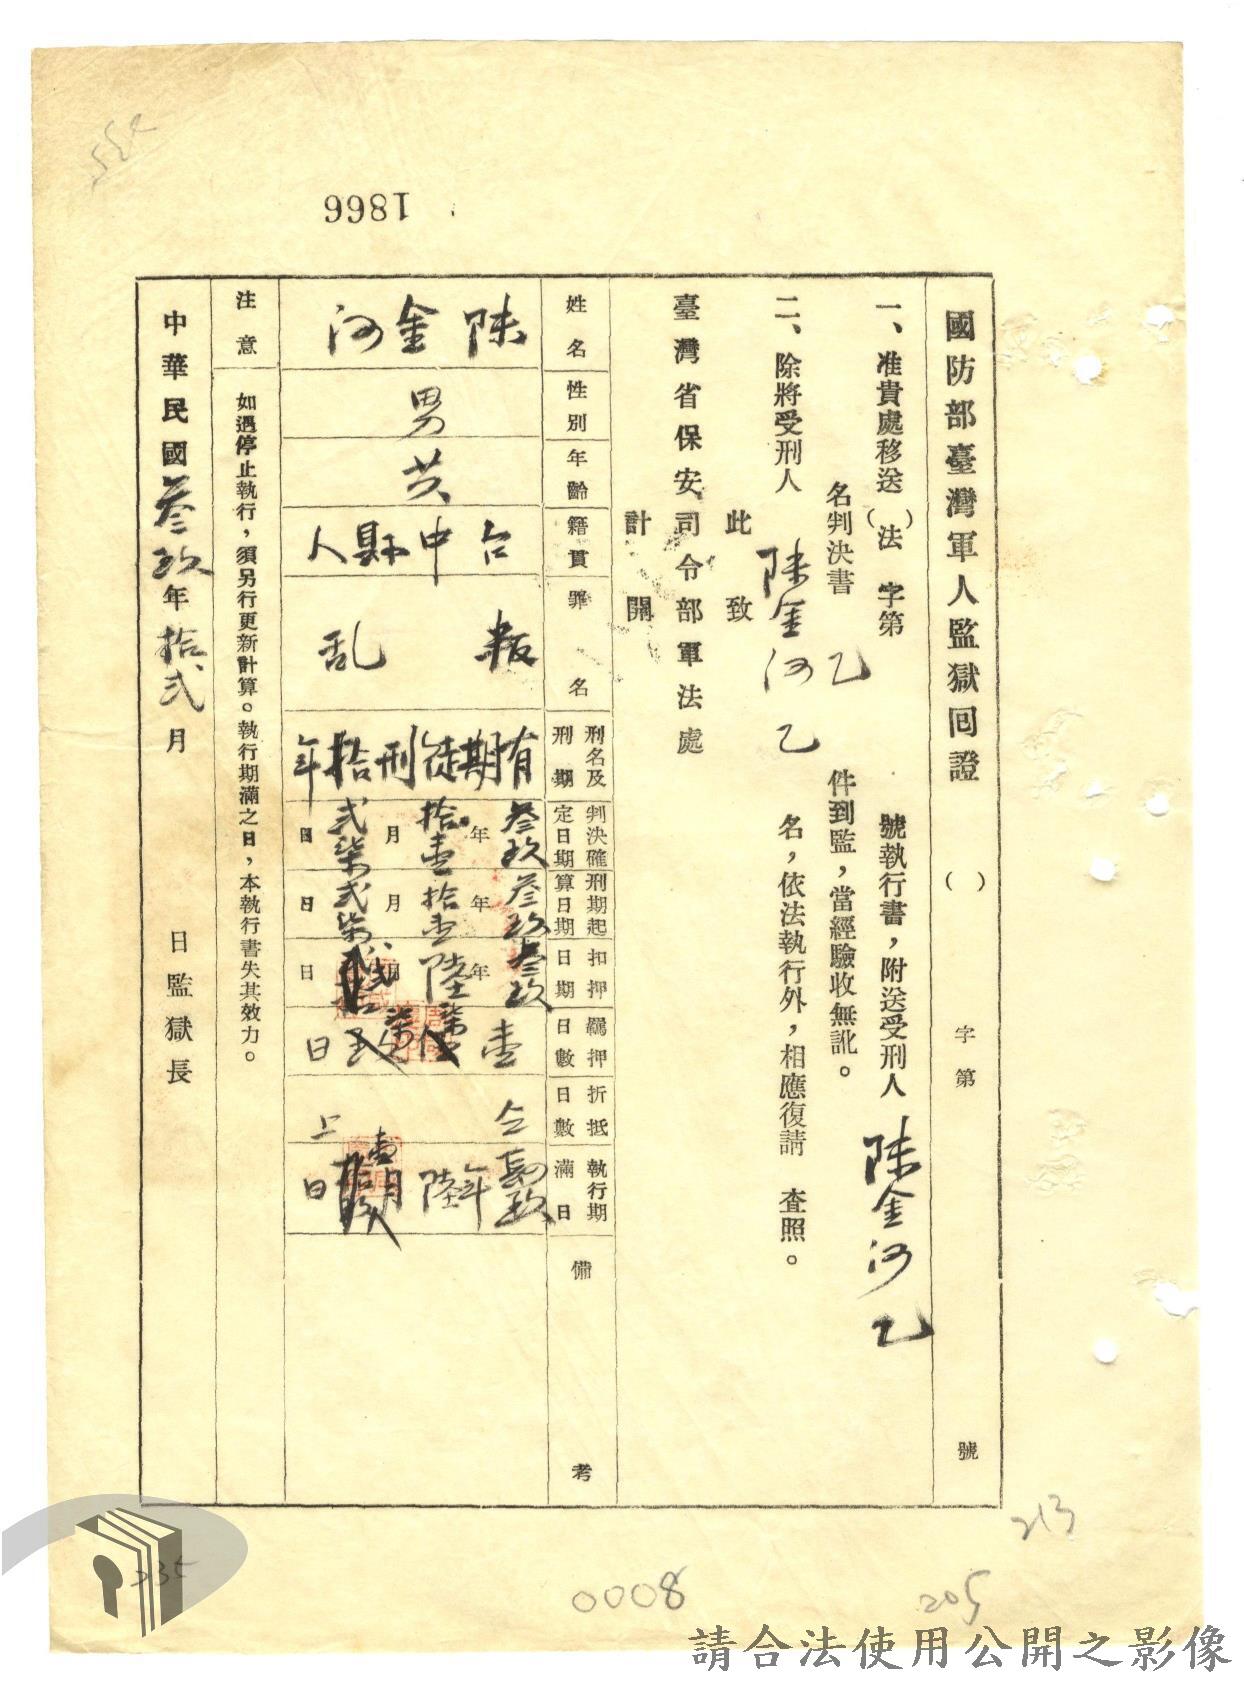 1866
國防部臺灣軍人監獄囘證
（ ）
字第
號
一、准貴處移送（ ）法 字第 號執行書，附送受刑人 陳金河 乙
名判決書 乙 件到監，當經驗收無訛。
二、除將受刑人 陳金河 乙 名，依法執行外，相應復請 查照。
此致
臺灣省保安司令部軍法處
計開
姓名
性別
年齡
籍貫
罪名
刑名及刑期
判決確定日期
刑期起算日期
扣押日期
羈押日數
折抵日數
執行期滿日
備考
陳金河
男
廿
台中縣人
叛乱
有期徒刑拾年
叁玖年拾壹月弍柒日
叁玖年拾壹月弍柒日
叁玖年陸月 日
壹 日
仝上
年陸月 日
注意 如遇停止執行，須另行更新計算。執行期滿之日，本執行書失其效力。
中華民國叁玖年拾弍月 日監獄長
213
235
0008
205
請合法使用公開之影像